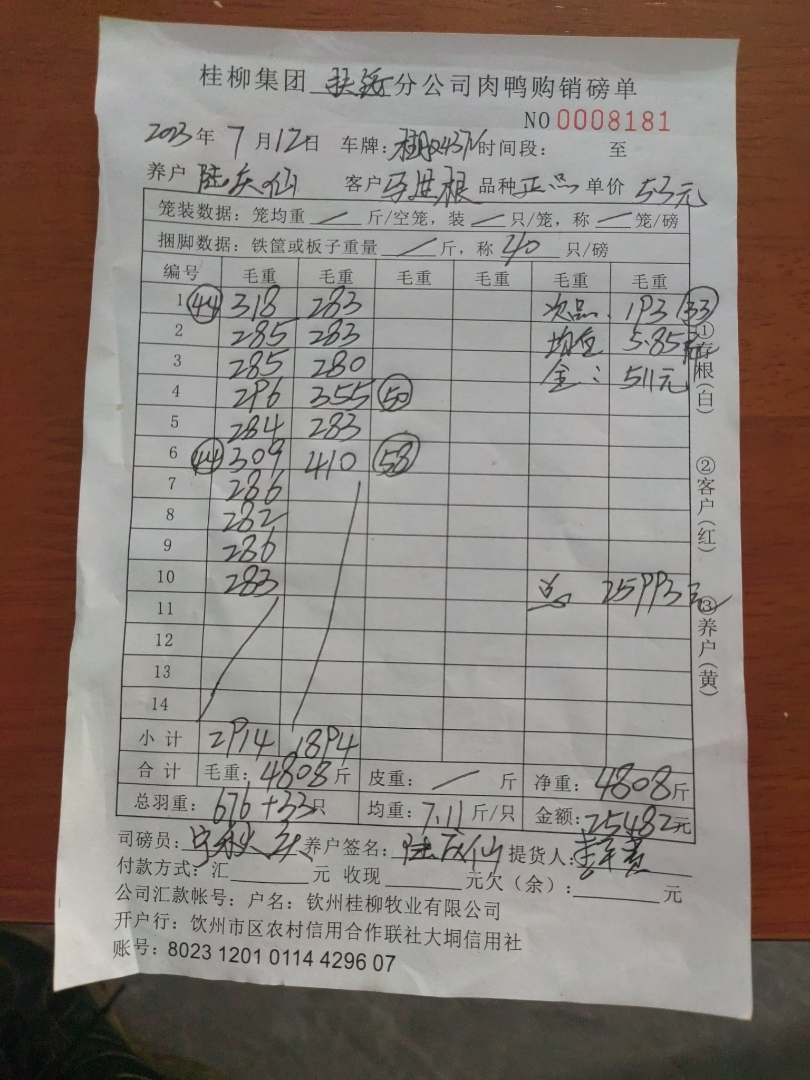 桂柳集团 扶绥 分公司肉鸭购销磅单
NO 0008181
2023年 7月12日 车牌: 时间段: 至
养户 陆庆仙 客户 马进根 品种 正品 单价 5.3元
笼装数据: 笼均重 / 斤/空笼, 装 / 只/笼, 称 / 笼/磅
捆脚数据: 铁筐或板子重量 / 斤, 称 40 只/磅
编号 毛重 毛重 毛重 毛重 毛重 毛重
1 44 318 283 次品: 193 33
2 285 283 均重 5.85
3 285 280 金: 511元
4 296 355 50
5 284 283
6 44 309 410 58
7 286
8 282
9 286
10 283 总 25993元
11
12
13
14
小计 2914 1894
合计 毛重: 4808斤 皮重: / 斤 净重: 4808斤
总羽重: 676+33只 均重: 7.11斤/只 金额: 25482元
司磅员: 养户签名: 陆庆仙 提货人:
付款方式: 汇 元 收现 元欠(余): 元
公司汇款帐号: 户名: 钦州桂柳牧业有限公司
开户行: 钦州市区农村信用合作联社大垌信用社
账号: 8023 1201 0114 4296 07
①存根(白)
②客户(红)
③养户(黄)